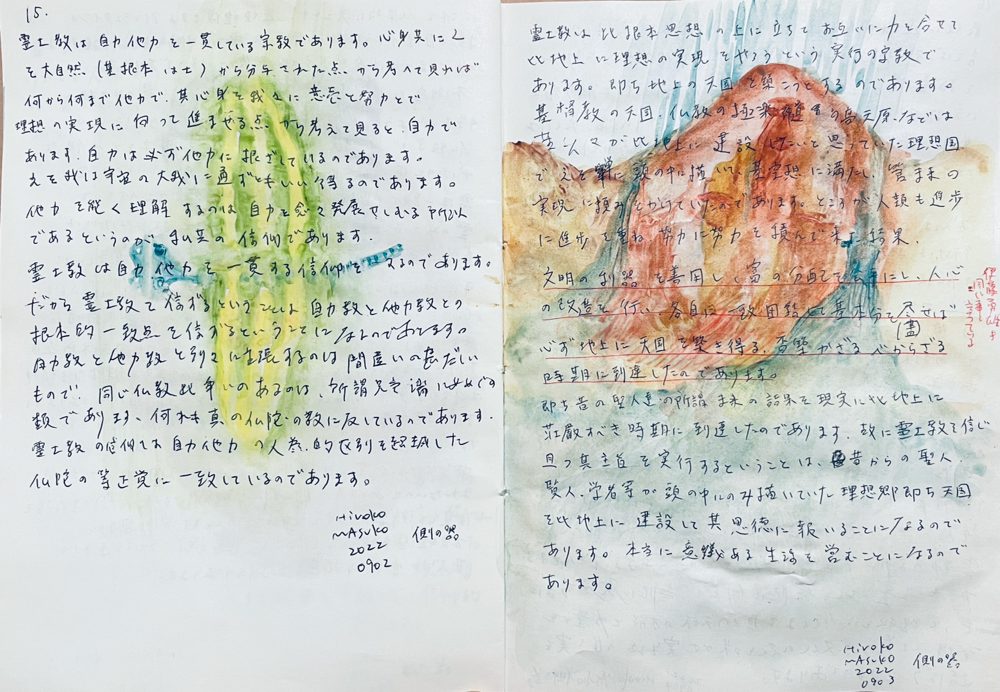 15.
霊土教は自力他力を一貫している宗教であります。心身共に之
を大自然(其根本は土)から分与された点から考えて見れば
何から何まで他力で、其心身を我々に意志と努力とで
理想の実現に向って進ませる点から考えて見ると、自力で
あります。自力は必ず他力に根ざしているのであります。
之を我は宇宙の大我に通ずともいい得るのであります。
他力を継く理解するのは自力を愈々発展せしむる所以
であるというのが私共の信仰であります。
霊土教は自力他力を一貫する信仰を するのであります。
だから霊土教を信ずるということは自力教と他力教との
根本的一致点を信ずるということになるのであります。
自力教と他力教と別々に主張するのは間違いの甚だしい
もので、同じ仏教此争いのあるのは、所謂兄弟
類であります、何れも真の仏陀の教に反しているのであります。
霊土教の信仰は自力他力の人為的区別を超越した
仏陀の等正覚に一致しているのであります。
Hiroko
mAsuko
2022
0902
側の器
霊土教は此根本思想の上に立ちてお互いに力を合せて
此地上に理想の実現をやろうという実行の宗教で
あります。即ち地上の天国を築こうとするのであります。
基督教の天国、仏教の極楽、 高天原などは
昔の人々が此地上に建設したいと思っていた理想国
で、之を 頭の中に描いて、甚空想に満たし、 未来の
実現に頼みをかけていたのであります。ところが人類も進歩
に進歩を重ね努力に努力を積んで来た結果、
文明の利器を善用し、富の分配を公平にし、人心
の改造を行い、各自に一致団結して其本分を尽せば
盡
必ず地上に天国を築き得る、否築かざるべからざる
時期に到達したのであります。
即ち昔の聖人達の所謂未来の 果を現実に此地上に
荘厳すべき時期に到達したのであります。故に霊土教を信じ
且つ其主旨を実行するということは、昔からの聖人
賢人、学者等が頭の中にのみ描いていた理想郷即ち天国
を此地上に建設して其恩徳に報いることになるので
あります。本当に意義ある生活を営むことになるので
あります。
Hiroko
mAsuko
2022
0903
側の器